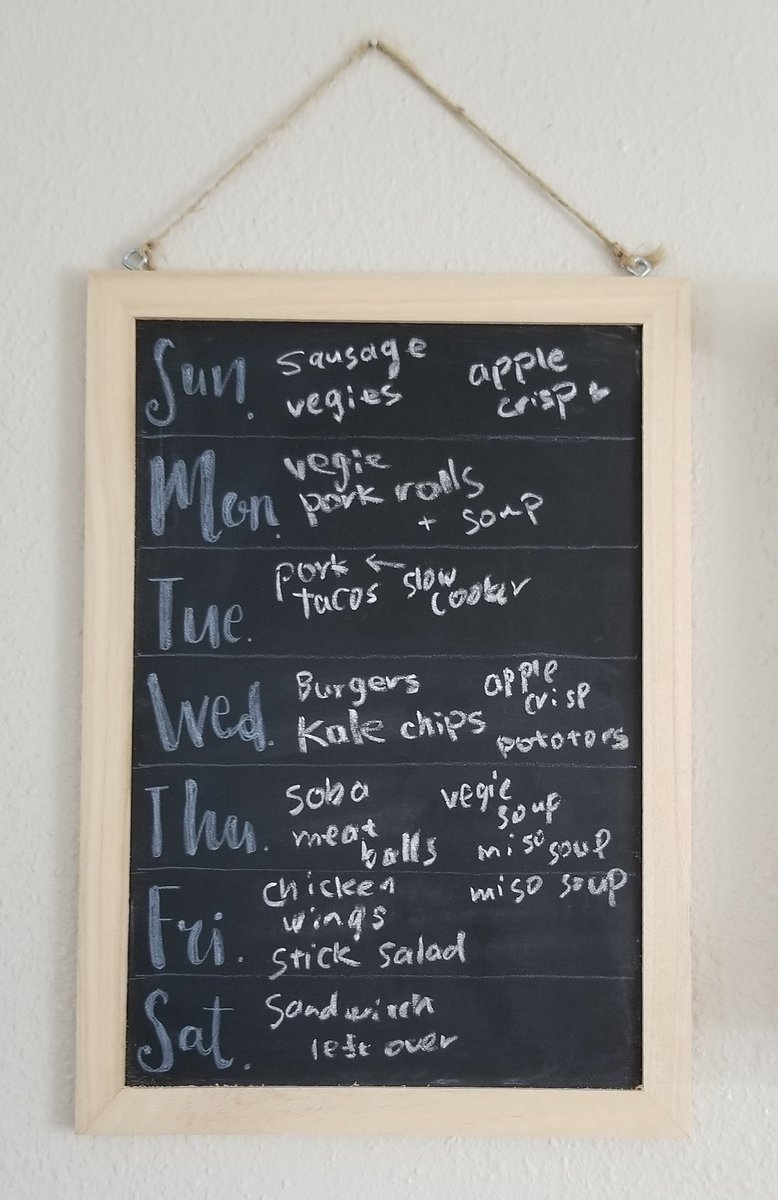 Sun.
sausage
vegies
apple
crisp
Mon.
vegie
pork rolls
+ soup
Tue.
pork ← slow
tacos cooker
Wed.
Burgers
Kale chips
apple
crisp
pototors
Thu.
soba
meat
balls
vegie
soup
miso soup
Fri.
chicken
wings
stick salad
miso soup
Sat.
Sandwirch
left over